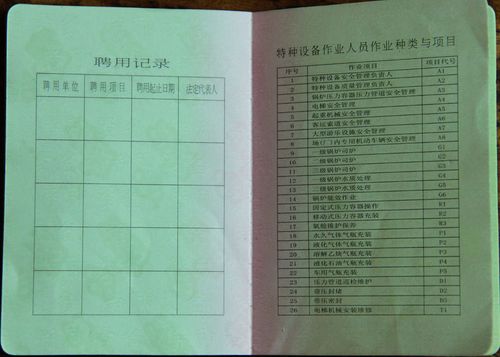 聘用记录
聘用单位 聘用项目 聘用起止日期 法定代表人
特种设备作业人员作业种类与项目
序号 作业项目 项目代号
1 特种设备安全管理负责人 A1
2 特种设备质量管理负责人 A2
3 锅炉压力容器压力管道安全管理 A3
4 电梯安全管理 A4
5 起重机械安全管理 A5
6 客运索道安全管理 A6
7 大型游乐设施安全管理 A7
8 场(厂)内专用机动车辆安全管理 A8
9 一级锅炉司炉 G1
10 二级锅炉司炉 G2
11 三级锅炉司炉 G3
12 一级锅炉水质处理 G4
13 二级锅炉水质处理 G5
14 锅炉能效作业 G6
15 固定式压力容器操作 R1
16 移动式压力容器充装 R2
17 氧舱维护保养 R3
18 永久气体气瓶充装 P1
19 液化气体气瓶充装 P2
20 溶解乙炔气瓶充装 P3
21 液化石油气瓶充装 P4
22 车用气瓶充装 P5
23 压力管道巡检维护 D1
24 带压封堵 D2
25 带压密封 D3
26 电梯机械安装维修 T1